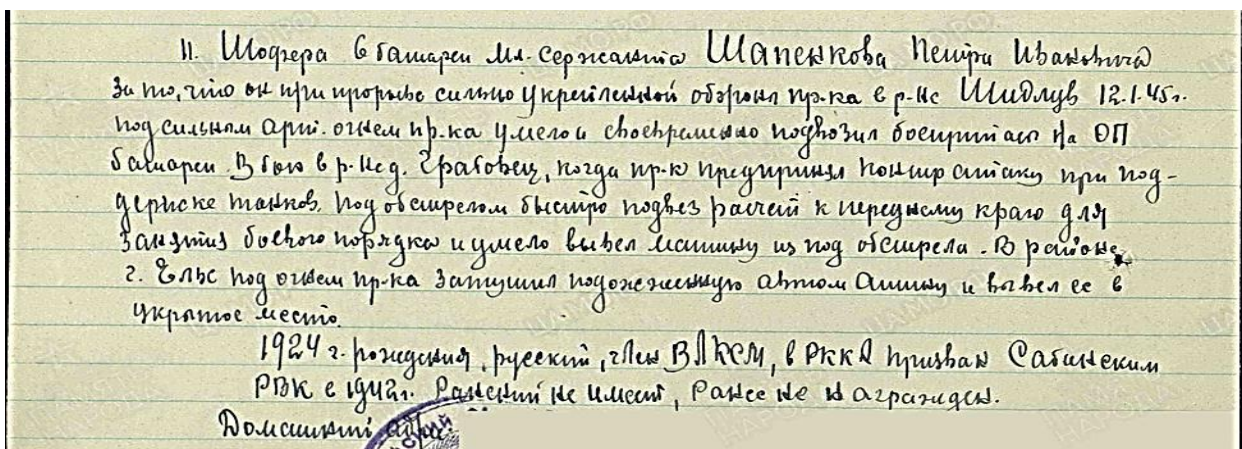 11. Шофера 6 батареи Мл. Сержанта Шапенкова Петра Ивановича
За то, что он при прорыве сильно укрепленной обороны пр-ка в р-не Шидлув 12.1.45г.
под сильным арт. огнем пр-ка умело и своевременно подвозил боеприпасы на ОП
батареи. В бою в р-не д. Грабовец, когда пр-к предпринял контратаку при под-
держке танков, под обстрелом быстро подвез расчет к переднему краю для
занятия боевого порядка и умело вывел машину из под обстрела. В районе
г. Ельс под огнем пр-ка затушил подожженную автомашину и вывел ее в
укрытое место.
1924 г. рождения, русский, член ВЛКСМ, в РККА призван Сабинским
РВК с 1942г. Ранений не имеет, Ранее не награжден.
Домашний адр.